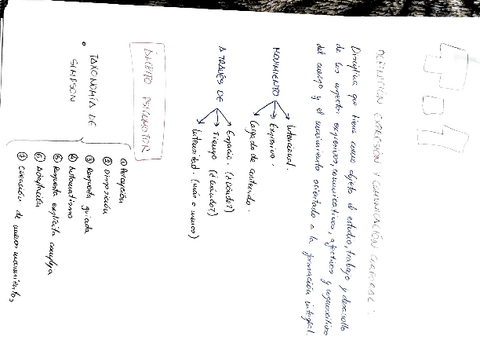 DEFINICIÓN EXPRESIÓN Y COMUNICACIÓN CORPORAL.
Disciplina que tiene como objeto de estudio, trabajo y desarrollo
de los aspectos expresivos, comunicativos, afectivos y cognoscitivos
del cuerpo y el movimiento orientado a la formación integral.
MOVIMIENTO
Intencional.
Expresivo.
Cargado de contenido.
A TRAVÉS DE
Espacio. (¿dónde?)
Tiempo (¿cuándo?)
Intensidad. (más o menos)
PSICOMOTOR
TAXONOMÍA DE
SIMPSON
① Percepción
② Disposición
③ Respuesta guiada
④ Automatismo
⑤ Respuesta explícita compleja
⑥ Adaptación
⑦ Creación de nuevos movimientos,